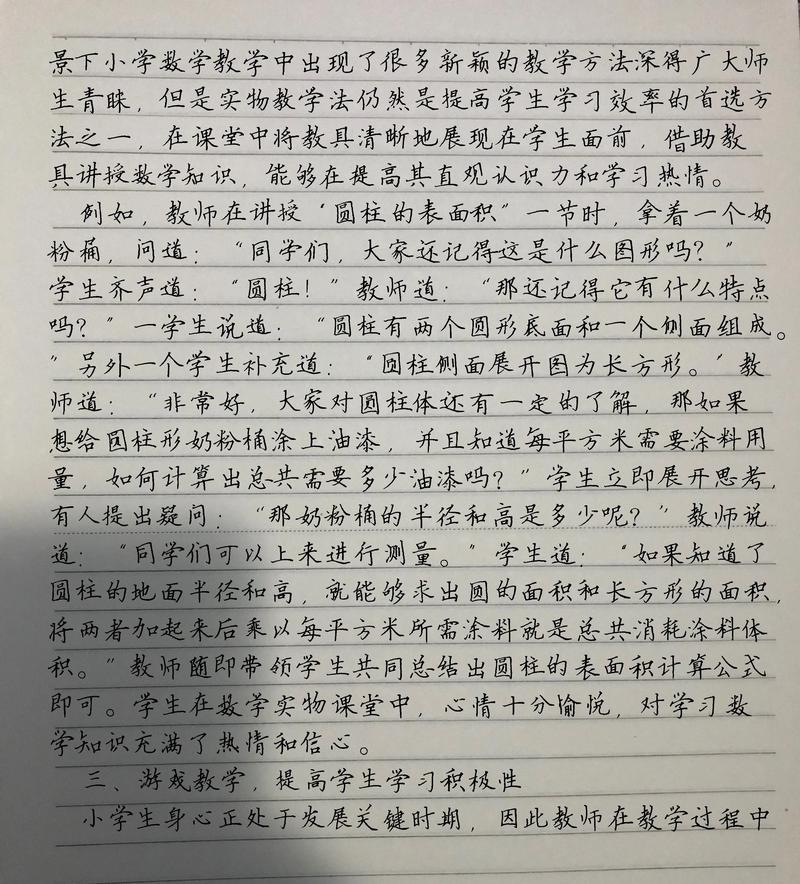 景下小学数学教学中出现了很多新颖的教学方法深得广大师
生青睐，但是实物教学法仍然是提高学生学习效率的首选方
法之一，在课堂中将教具清晰地展现在学生面前，借助教
具讲授数学知识，能够在提高其直观认识力和学习热情。
例如，教师在讲授“圆柱的表面积”一节时，拿着一个奶
粉桶，问道：“同学们，大家还记得这是什么图形吗？”
学生齐声道：“圆柱！”教师道：“那还记得它有什么特点
吗？”一学生说道：“圆柱有两个圆形底面和一个侧面组成。
”另外一个学生补充道：“圆柱侧面展开图为长方形。”教
师道：“非常好，大家对圆柱体还有一定的了解，那如果
想给圆柱形奶粉桶涂上油漆，并且知道每平方米需要涂料用
量，如何计算出总共需要多少油漆吗？”学生立即展开思考，
有人提出疑问：“那奶粉桶的半径和高是多少呢？”教师说
道：“同学们可以上来进行测量。”学生道：“如果知道了
圆柱的地面半径和高，就能够求出圆的面积和长方形的面积，
将两者加起来后乘以每平方米所需涂料就是总共消耗涂料体
积。”教师随即带领学生共同总结出圆柱的表面积计算公式
即可。学生在数学实物课堂中，心情十分愉悦，对学习数
学知识充满了热情和信心。
三、游戏教学，提高学生学习积极性
小学生身心正处于发展关键时期，因此教师在教学过程中